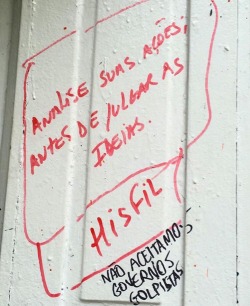 ANALISE SUAS AÇÕES,
ANTES DE JULGAR AS
IDEIAS.
HISFIL
NÃO ACEITAMOS
GOVERNOS
GOLPISTAS